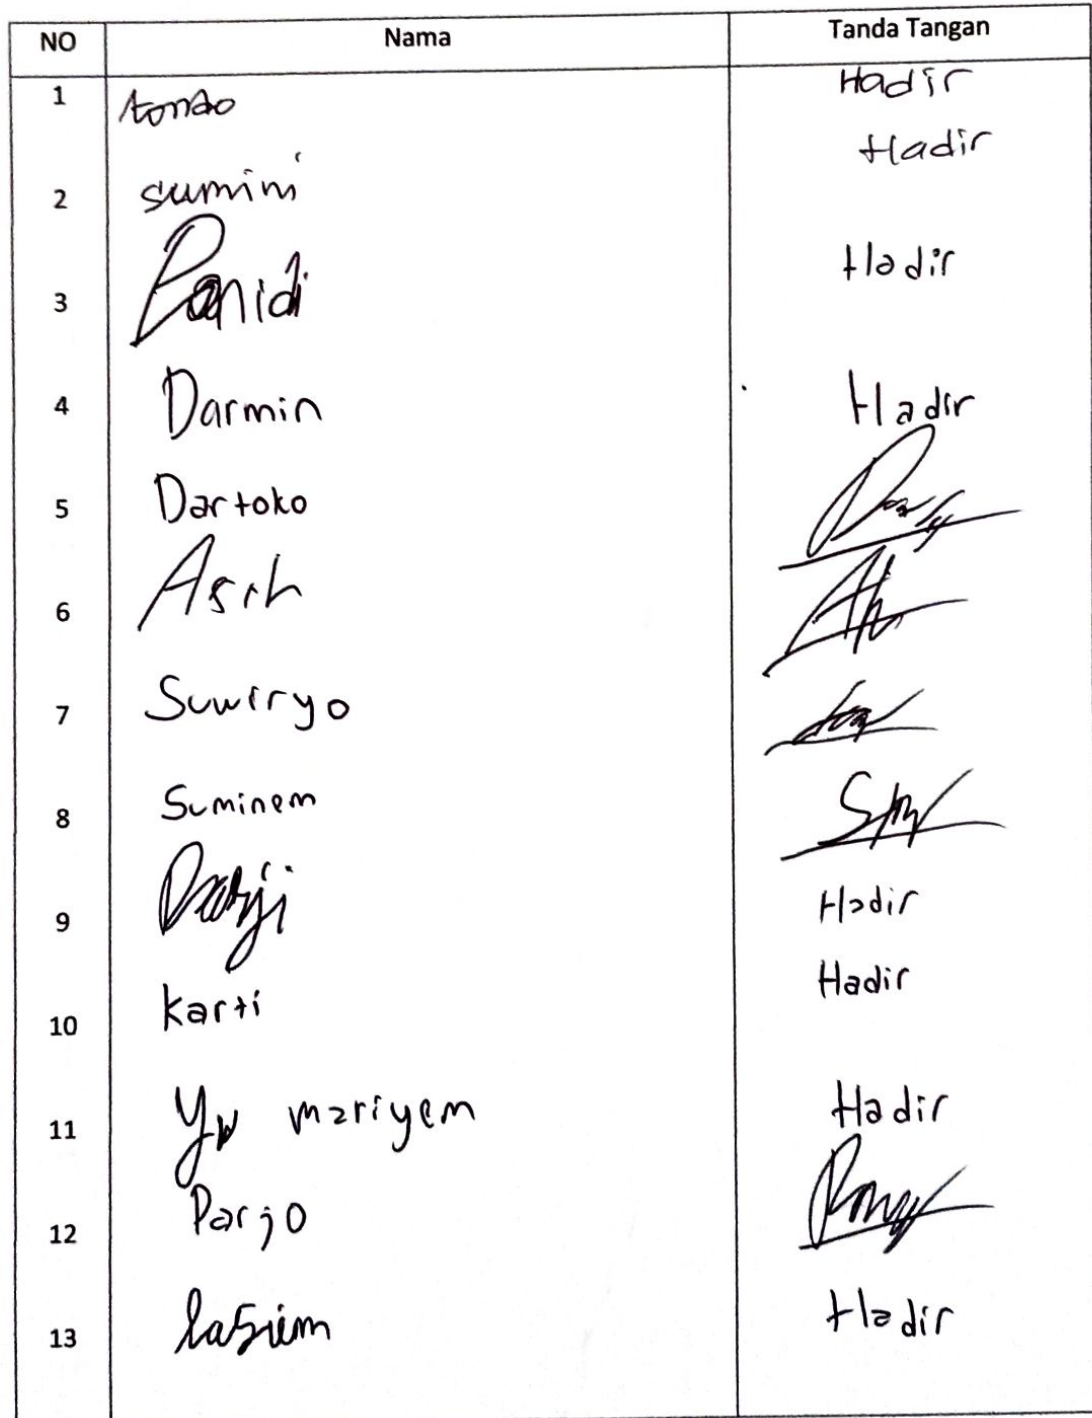 NO Nama Tanda Tangan
1 Hadir
2 sumini Hadir
3 Panidi Hadir
4 Darmin Hadir
5 Dartoko
6 Asih
7 Suwiryo
8 Suminem
9 Hadir
10 Karti Hadir
11 Yu mariyem Hadir
12 Parjo
13 lasiem Hadir